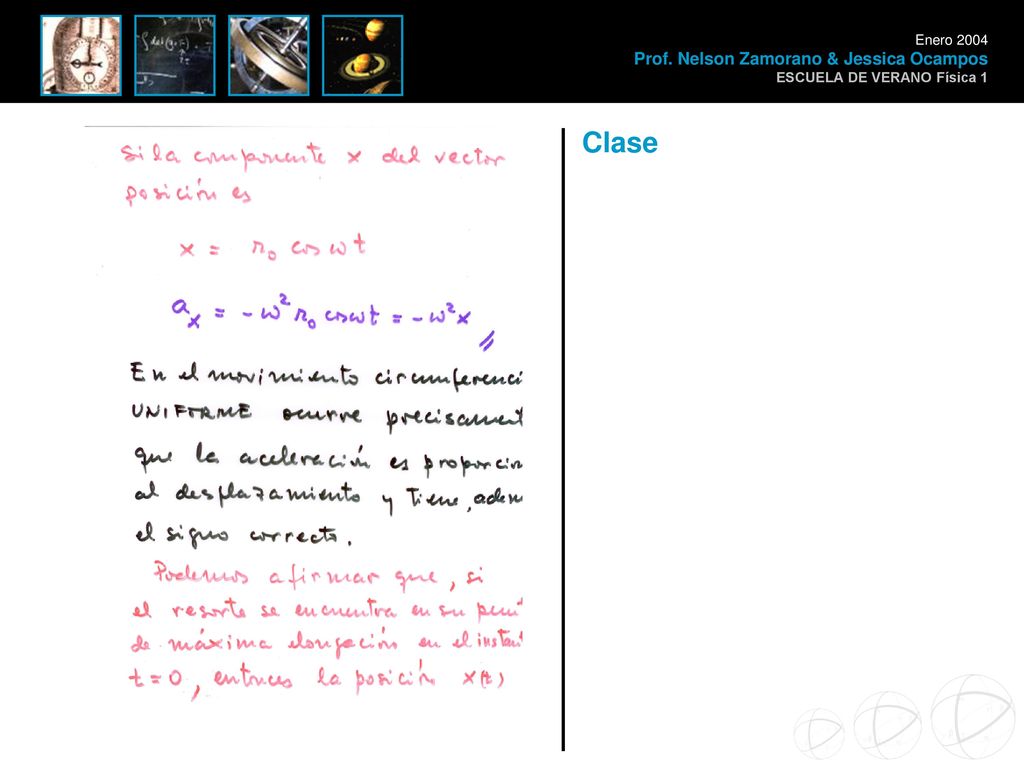 Enero 2004
Prof. Nelson Zamorano & Jessica Ocampos
ESCUELA DE VERANO Física 1
Clase
Si la componente x del vector
posición es
x = r₀ cos ωt
aₓ = - ω² r₀ cos ωt = - ω² x //
En el movimiento circunferenci
UNIFORME ocurre precisament
que la aceleración es proporcin
al desplazamiento y tiene, adem
el signo correcto.
Podemos afirmar que, si
el resorte se encuentra en su
de máxima elongación en el instant
t = 0, entonces la posición x(t)